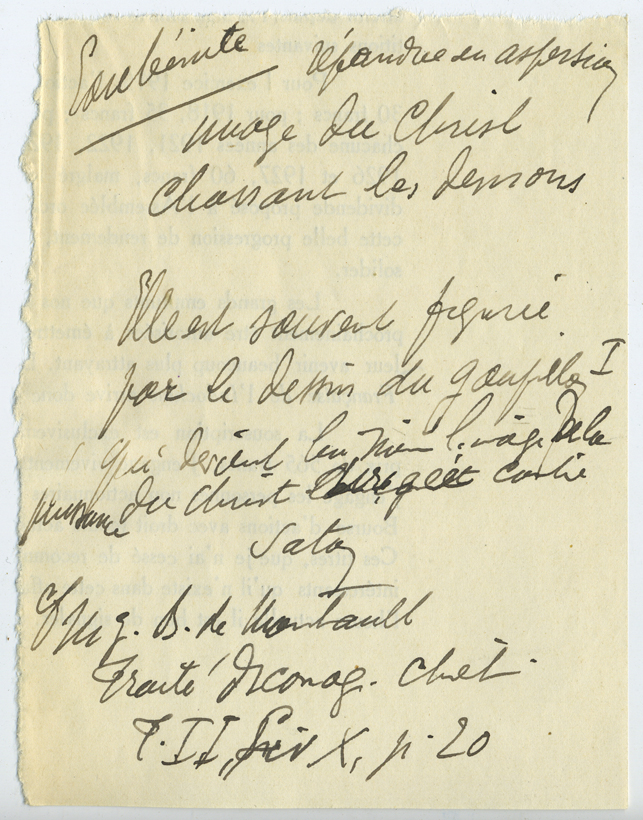 Eau bénite répandue en aspersion
image du Christ
chassant les demons
Elle est souvent figurée
par le dessin du goupillon I
qui devient lui même l'image De la
puissance du Christ dirigée contre
Satan
Mg. B. de Montault
Traité d'Iconog. chrét.
T. II, Liv X, p. 20